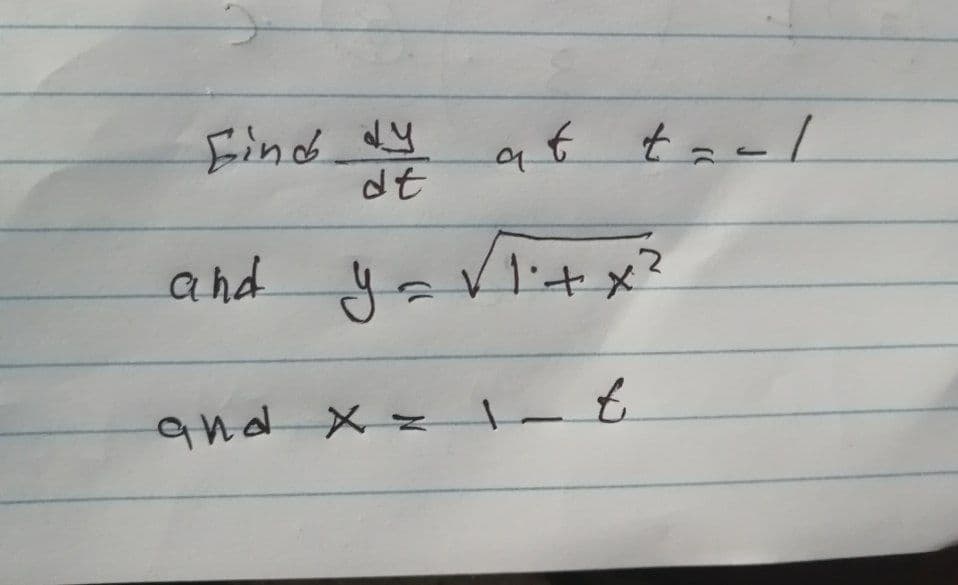 Find dy/dt at t = -1
and y = √1+x²
and x = 1 - t